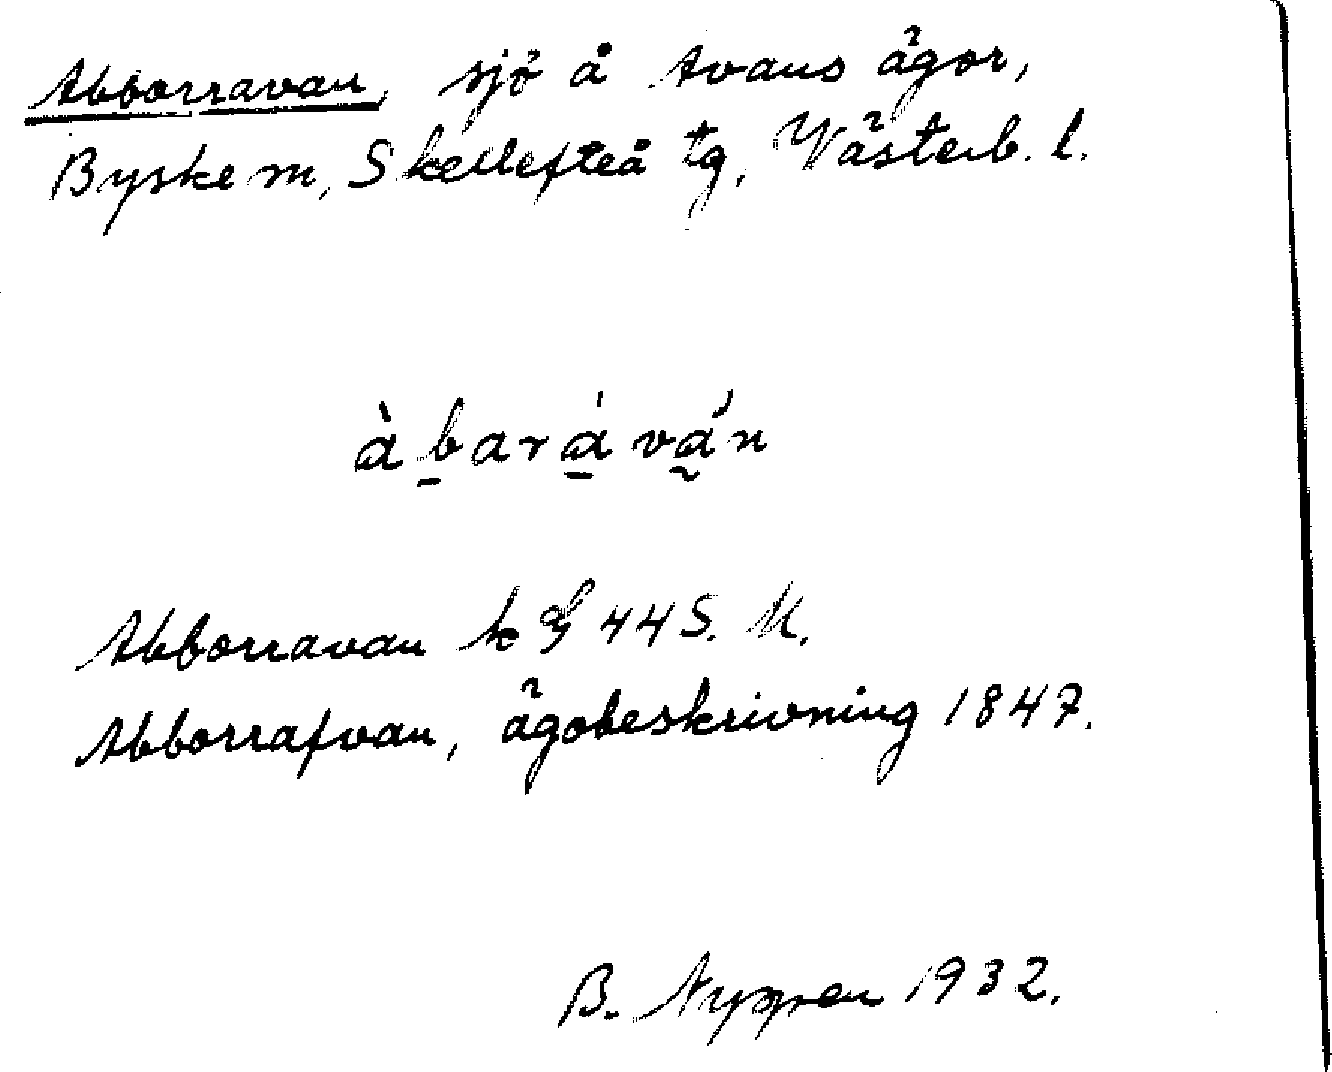 Abborravan, sjö å Avans ägor,
Byske m, Skellefteå tg, Västerb. l.
àbaráván
Abborravan k 44 S. U.
Abborrafvan, ägobeskrivning 1847.
B. Nyppen 1932.